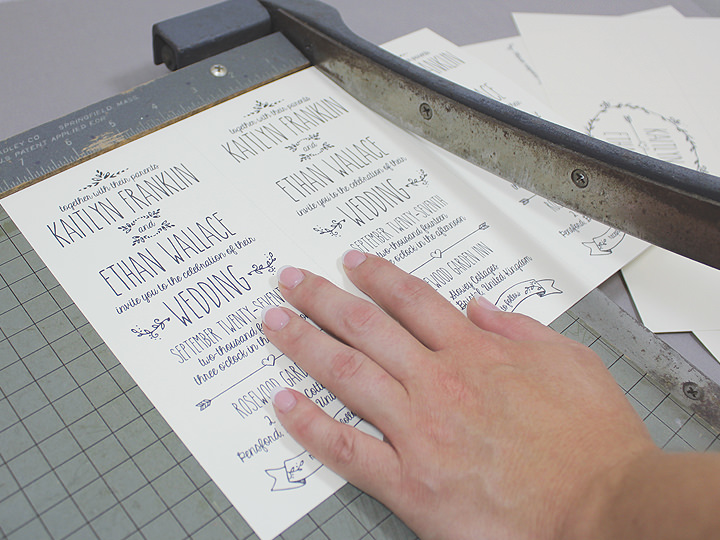 SPRINGFIELD, MASS
PATENT APPLIED FOR
7 6 5 4
together with their parents
KAITLYN FRANKLIN
and
ETHAN WALLACE
invite you to the celebration of their
WEDDING
SEPTEMBER TWENTY-SEVEN
two-thousand fou
three o'clock in the
ROSEWOOD GARD
2
Pensford
together with their parents
KAITLYN FRANKLIN
and
ETHAN WALLACE
invite you to the celebration of their
WEDDING
SEPTEMBER TWENTY-SEVENTH
two-thousand fourteen
three o'clock in the afternoon
ROSEWOOD GARDEN INN
Stowey Cottages
United Kingdom
to follow
FRANKLIN
WALLACE
KAITLYN